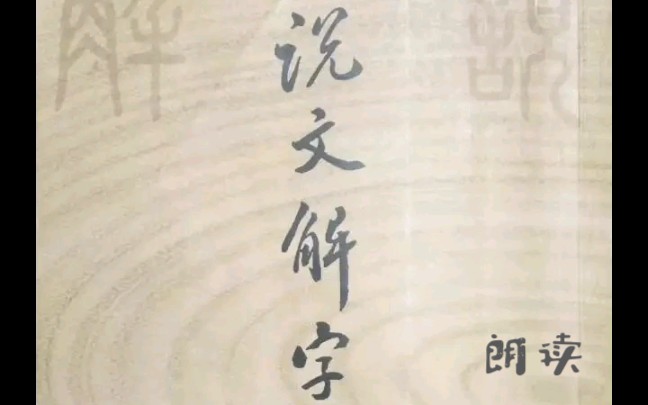 说文解字
朗读
説
解